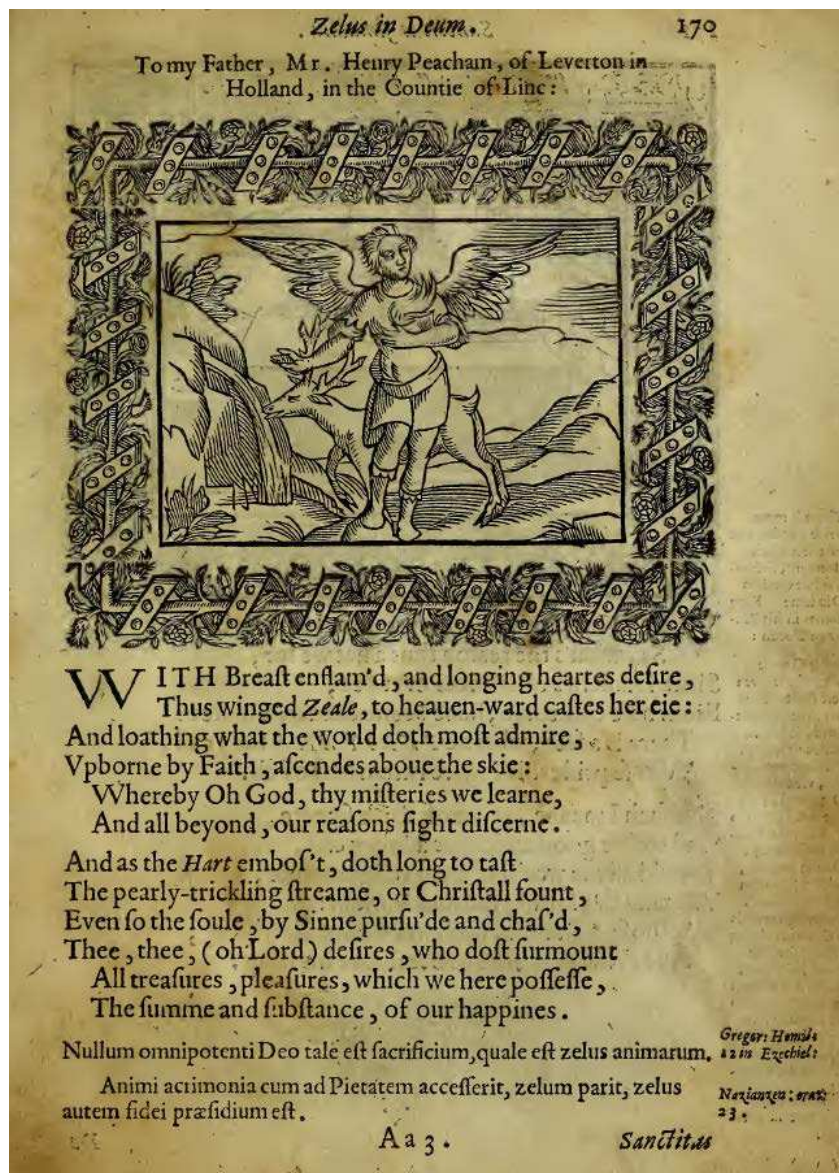 Zelus in Deum. 170
To my Father, Mr. Henry Peacham, of Leverton in
Holland, in the Countie of Linc:
WITH Breaſt enflam'd, and longing heartes deſire,
Thus winged Zeale, to heauen-ward caſtes her eie:
And loathing what the world doth moſt admire,
Vpborne by Faith, aſcendes aboue the skie:
Whereby Oh God, thy miſteries we learne,
And all beyond, our reaſons ſight diſcerne.
And as the Hart emboſ't, doth long to taſt
The pearly-trickling ſtreame, or Chriſtall fount,
Even ſo the ſoule, by Sinne purſu'de and chaſ'd,
Thee, thee, (oh Lord) deſires, who doſt ſurmount
All treaſures, pleaſures, which we here poſſeſſe,
The ſumme and ſubſtance, of our happines.
Nullum omnipotenti Deo tale eſt ſacrificium, quale eſt zelus animarum. Gregor: Homil:
12 in Ezechiel:
Animi acrimonia cum ad Pietatem acceſſerit, zelum parit, zelus Nazianzen: orat:
autem fidei præſidium eſt. 23.
Aa 3. Sanctitas